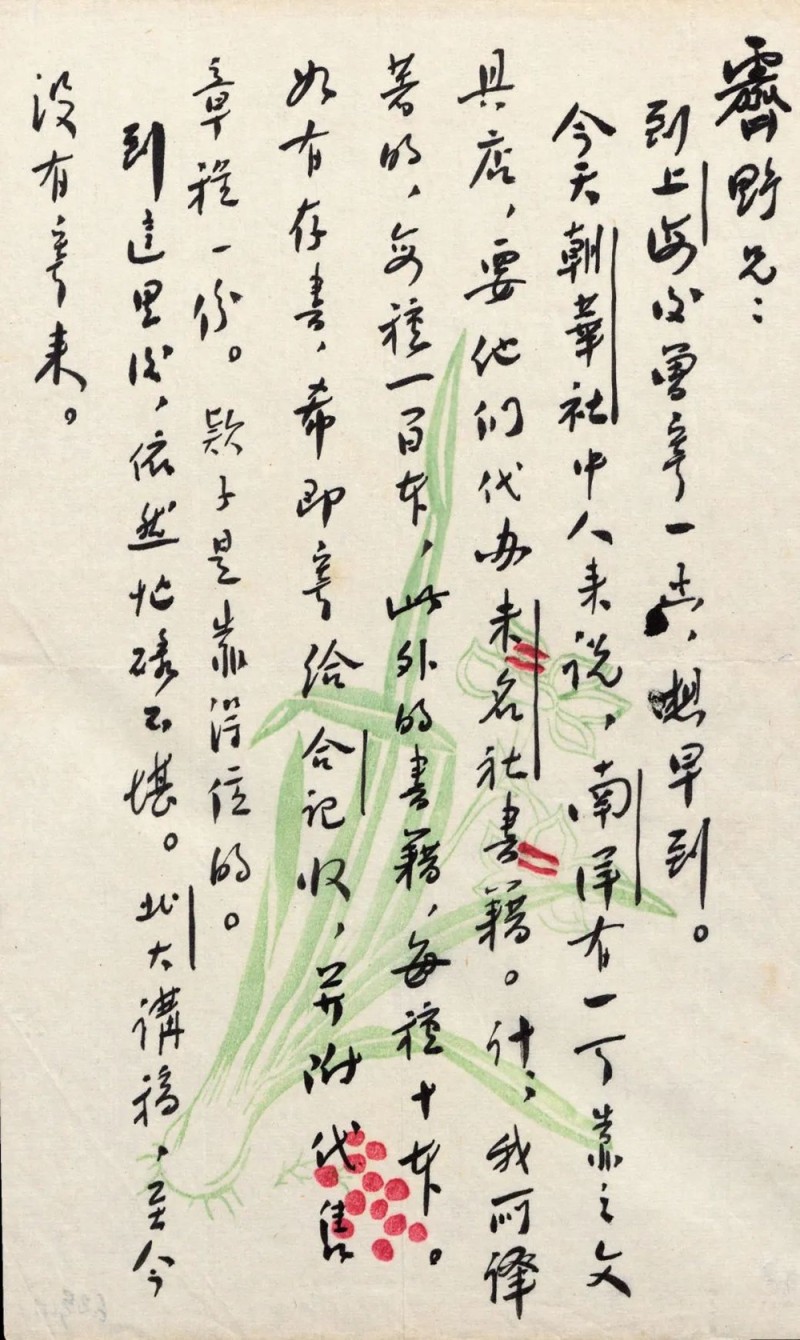 霽野兄：
到上海后曾寄一函，想早到。
今天朝華社中人来说，南洋有一个靠之文
具店，要他们代办未名社書籍。计，我所译
著的，每種一百本，此外的書籍，每種十本。
如有存書，希即寄给合记收，并附代售
章程一份。款子是靠得住的。
到這里后，依然忙碌不堪。北大講稿，至今
没有寄来。